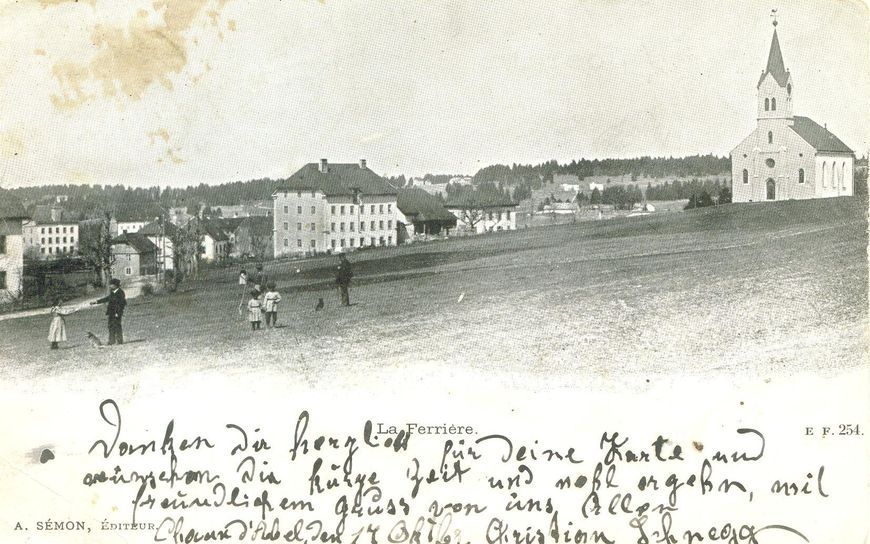 La Ferrière.
E F. 254.
Danken Dir herzlich für deine Karte und
wünschen Dir kurze Zeit und wohl ergehn, mit
freundlichem Gruss von uns Allen
A. SÉMON, ÉDITEUR.
Chaux d'Abel, den 17 Oktb. Christian Schnegg